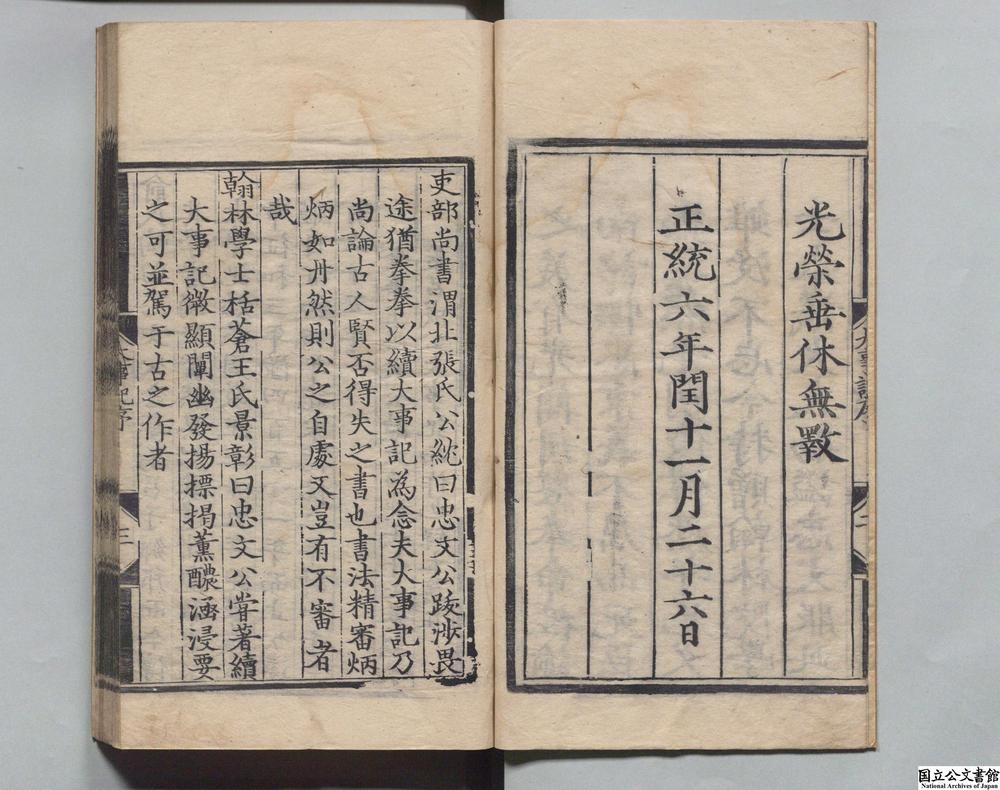 光榮垂休無斁
正統六年閏十一月二十六日
吏部尚書渭北張氏公紞曰忠文公跋涉畏
途猶拳拳以續大事記為念夫大事記乃
尚論古人賢否得失之書也書法精審炳
炳如丹然則公之自處又豈有不審者
哉
翰林學士栝蒼王氏景彰曰忠文公甞著續
大事記微顯闡幽發揚摽掲薫醲涵浸要
之可並駕于古之作者
大事記序
三
国立公文書館
National Archives of Japan